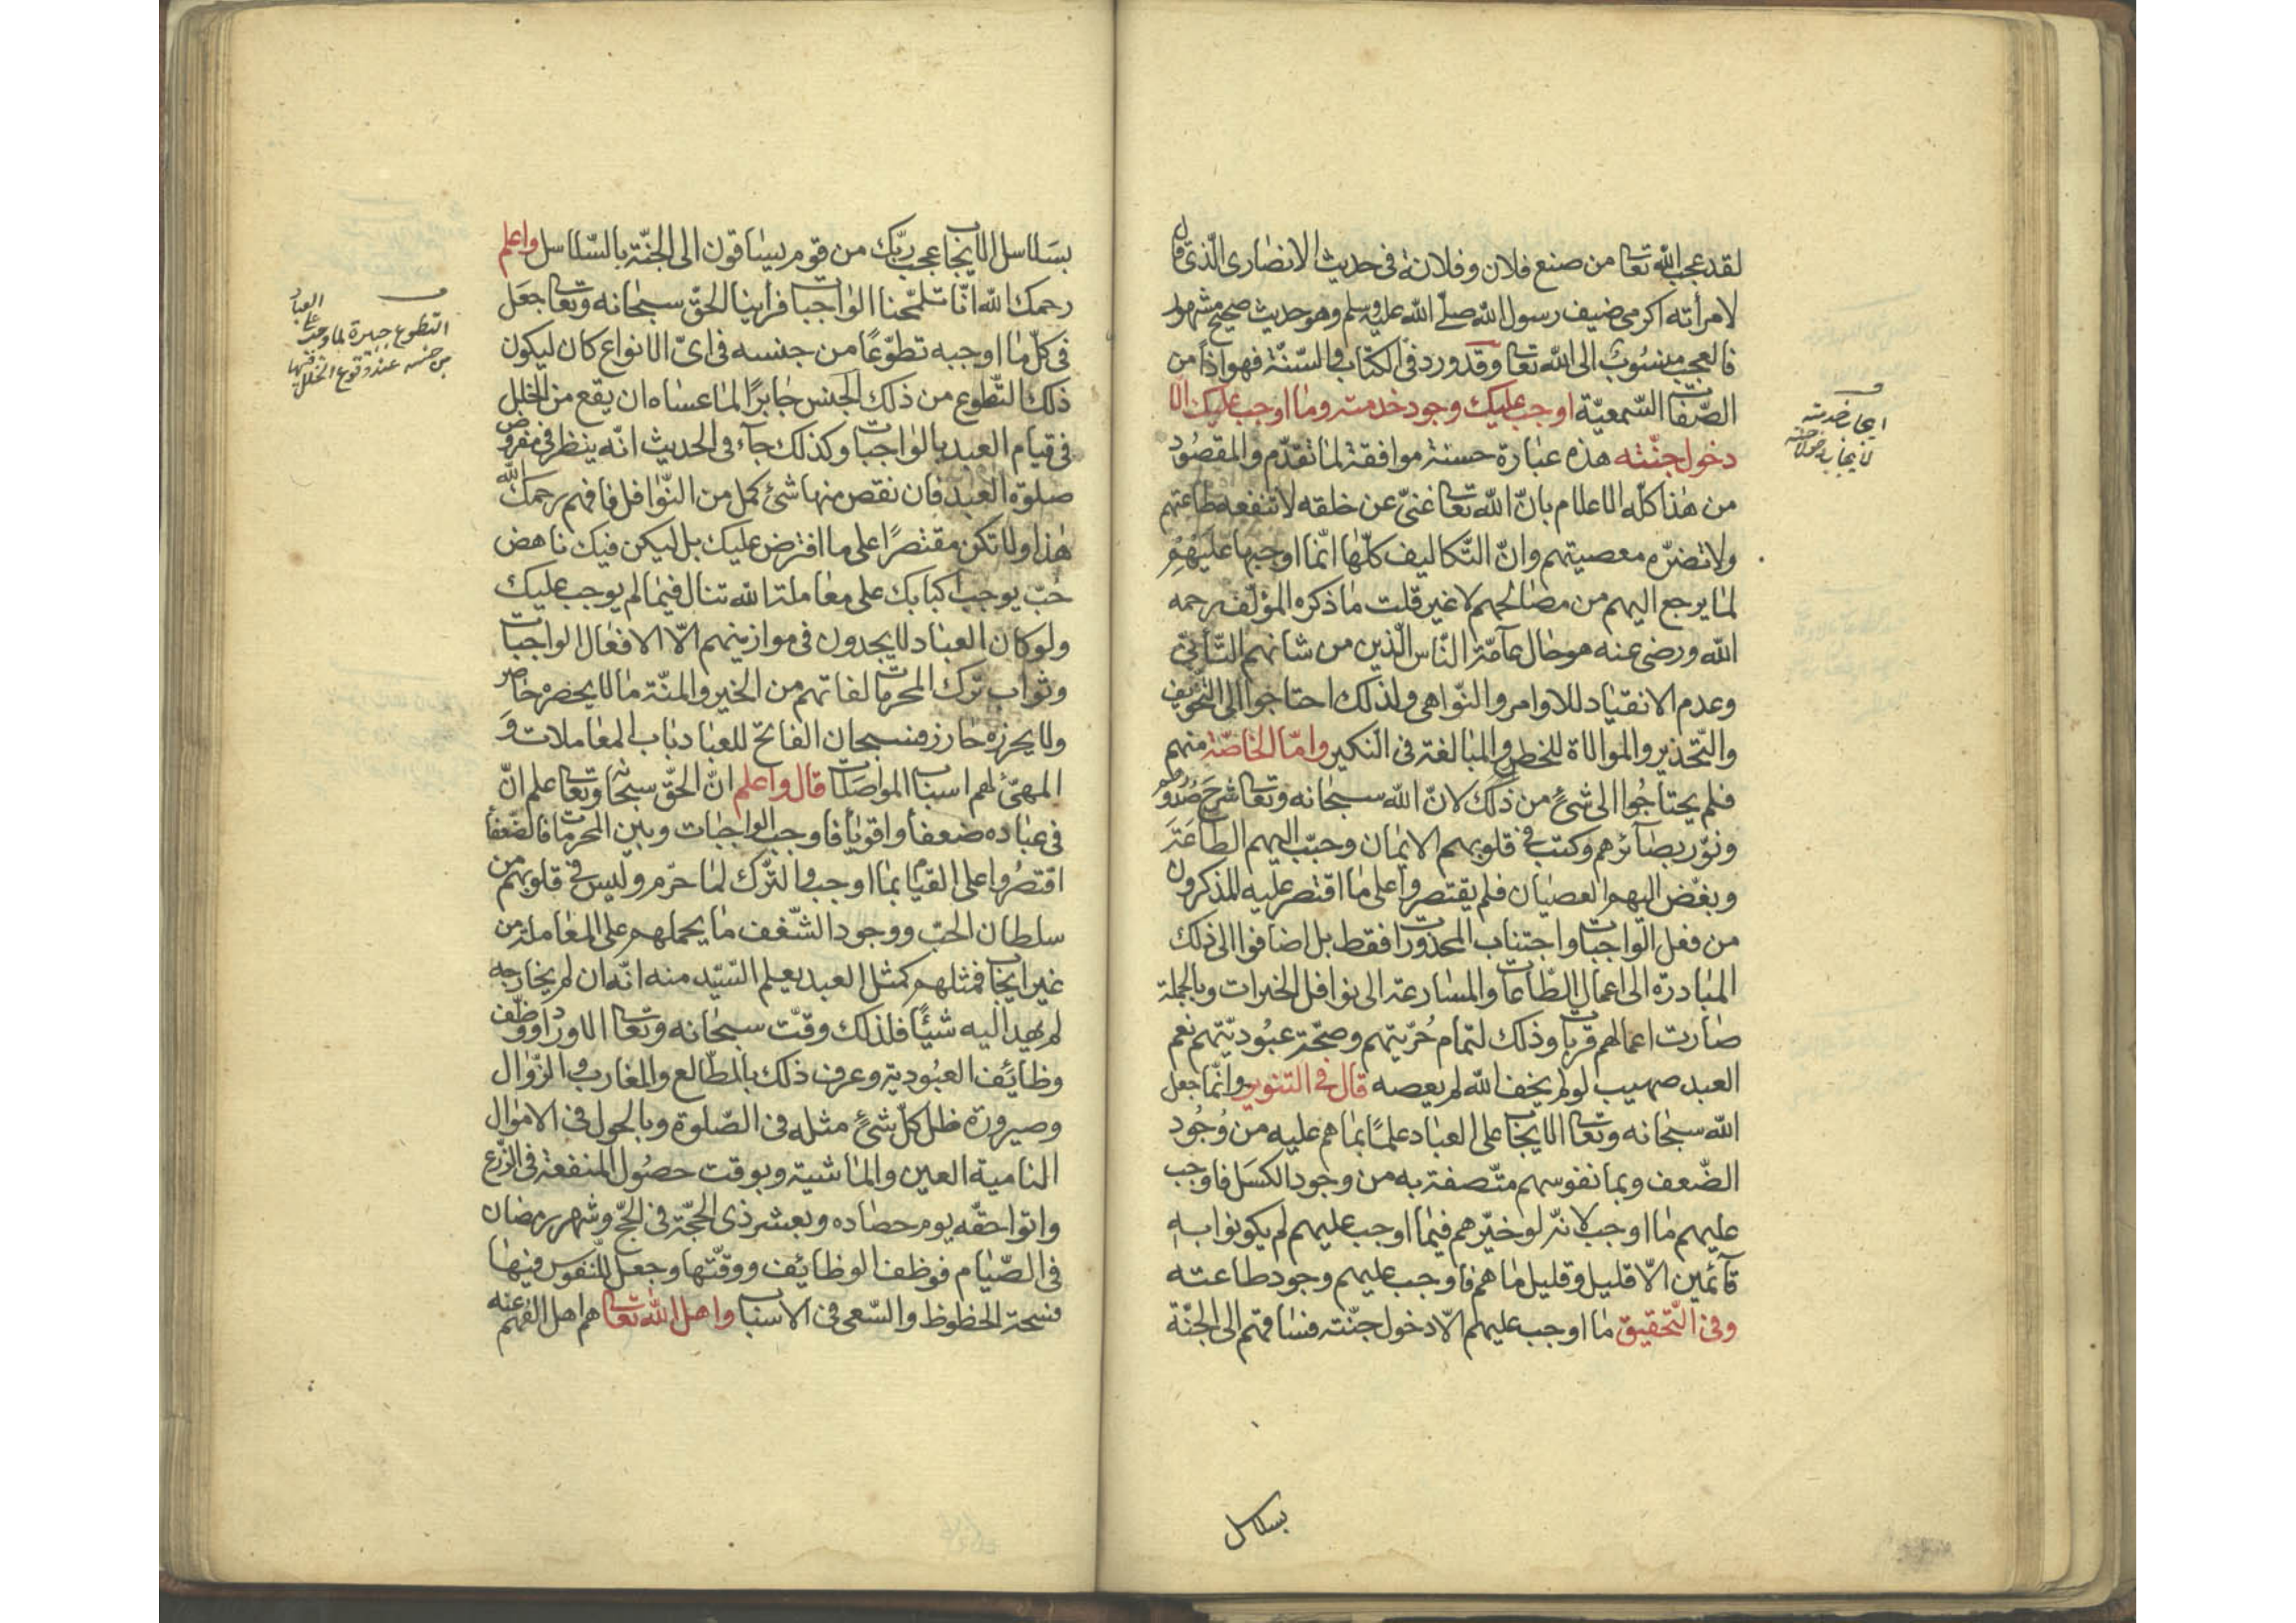 لقد عجب الله تعا من صنع فلان وفلانة فى حديث الانصارى الّذى قال
لامرأته اكرمى ضيف رسول الله صلّى الله عليه وسلم وهو حديث صحيح مشهور
فالعجب منسوب الى الله تعا وقد ورد فى الكتاب والسّنّة فهو اذا من
الصّفات السّمعيّة اوجب عليك وجود خدمته وما اوجب عليك الّا
دخول جنّته هذه عبارة حسنة موافقة لما تقدّم والمقصود
من هذا كلّه الاعلام بانّ الله تعا غنىّ عن خلقه لا تنفعه طاعتهم
ولا تضرّه معصيتهم وانّ التّكاليف كلّها انّما اوجبها عليهم
لما يرجع اليهم من مصالحهم لا غير قلت ما ذكره المؤلّف رحمه
الله ورضى عنه هو حال عآمّة النّاس الّذين من شانهم التّأبّى
وعدم الانقياد للاوامر والنّواهى ولذلك احتاجوا الى التّخويف
والتّحذير والموالاة للخطر والمبالغة فى النكير وامّا الخاصّة منهم
فلم يحتاجوا الى شئ من ذلك لانّ الله سبحانه وتعا شرح صدورهم
ونوّر بصآئرهم وكتب فى قلوبهم الايمان وحبّب اليهم الطّاعة
وبغّض اليهم العصيان فلم يقتصروا على ما اقتصر عليه المذكرون
من فعل الواجبات واجتناب المحذورات فقط بل اضافوا الى ذلك
المبادرة الى اعمال الطّاعات والمسارعة الى نوافل الخيرات وبالجملة
صارت اعمالهم قربات وذلك لتمام حُرّيتهم وصحّة عبوديّتهم نعم
العبد صهيب لو لم يخف الله لم يعصه قال فى التنوير وانّما جعل
الله سبحانه وتعا الايجاب على العباد علمًا بما هم عليه من وُجُود
الضّعف وبما نفوسهم متّصفة به من وجود الكسَل فاوجب
عليهم ما اوجب لانّه لو خيّرهم فيما اوجب عليهم لم يكونوا به
قآئمين الّا قليل وقليل ما هم فاوجب عليهم وجود طاعته
وفى التّحقيق ما اوجب عليهم الّا دخول جنّته فساقهم الى الجنّة
بسلاسل
ايجاب خدمته
بسَلاسل الايجاب عجب ربّك من قوم يساقون الى الجنّة بالسّلاسل واعلم
رحمك الله انّا تلمّحنا الواجبات فرأينا الحقّ سبحانه وتعا جعل
فى كلّ ما اوجبه تطوّعًا من جنسه فى اىّ الانواع كان ليكون
ذلك التّطوع من ذلك الجنس جابرًا لما عساه ان يقع من الخلل
فى قيام العبد بالواجبات وكذلك جآء فى الحديث انّه ينظر فى مفروض
صلوة العبد فان نقص منها شئ كمل من النّوافل فافهم رحمك الله
هذا ولا تكن مقتصرًا على ما افترض عليك بل ليكن فيك ناهض
حبّ يوجب اكبابك على معاملة الله تنال فيما لم يوجب عليك
ولو كان العباد لا يجدون فى موازينهم الّا الافعال الواجبات
وثواب ترك المحرمات لفاتهم من الخير والمنّة ما لا يحصره حاصر
ولا يحرزه حارز فسبحان الفاتح للعباد باب المعاملات وَ
المهيّئ لهم اسباب المواصَلات قال واعلم انّ الحقّ سبحانه وتعا علم انّ
فى عباده ضعفا واقويأ فاوجب الواجبات وبين المحرمات فالضّعفأ
اقتصروا على القيام بما اوجب والتّرك لما حرّم وليس فى قلوبهم من
سلطان الحبّ ووجود الشّغف ما يحملهم على المعاملة من
غير ايجاب فمثلهم كمثل العبد يعلم السّيّد منه انّه ان لم يخارجه
لم يهد اليه شيئًا فلذلك وقّت سبحانه وتعا الاوراد ووظّف
وظآئف العبُودية وعرف ذلك بالمطالع والمغارب والزّوال
وصيرورة ظلّ كلّ شئ مثله فى الصّلوة وبالحول فى الاموال
النامية العين والماشية وبوقت حصُول المنفعة فى الزّرع
واتوا حقّه يوم حصاده وبعشر ذى الحجّة فى الحجّ وشهر رمضان
فى الصّيام فوظف الوظائف ووقّتها وجعل للنّفوس فيها
فسحة الحظوظ والسّعى فى الاسباب واهل الله تعا هم اهل الفهم عنه
التطوع جبرة لما وجب على العباد
من جنسه عند وقوع الخلل فيها